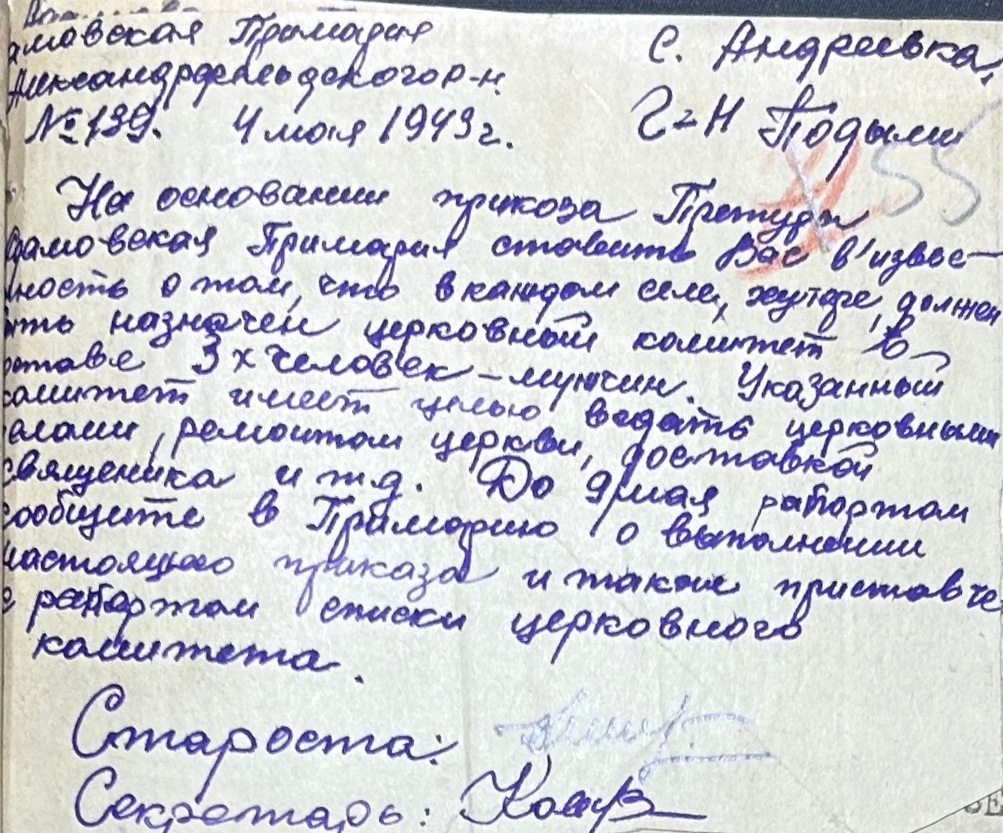 амовская Примария
Александрфельдского р-н.
№ 139. 4 мая 1943 г.
С. Андреевка,
Г=Н Подыми
55
На основании приказа Претуры
амовская Примария ставить Вас в'извес-
ность о том, что в каждом селе, хуторе, должен
ыть назначен церковный комитет в
оставе 3х человек-мужчин. Указанный
комитет имеет целью ведать церковными
елами, ремонтом церкви, доставкой
священика и т.д. До 9 мая рапортом
сообщите в Примарию о выполнении
настоящего приказа и также приставте
с рапортом списки церковного
комитета.
Староста:
Секретарь: